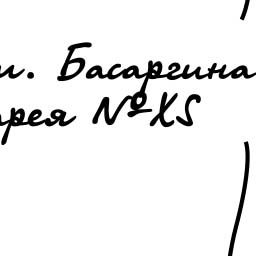 и. Басаргина
арея №XS